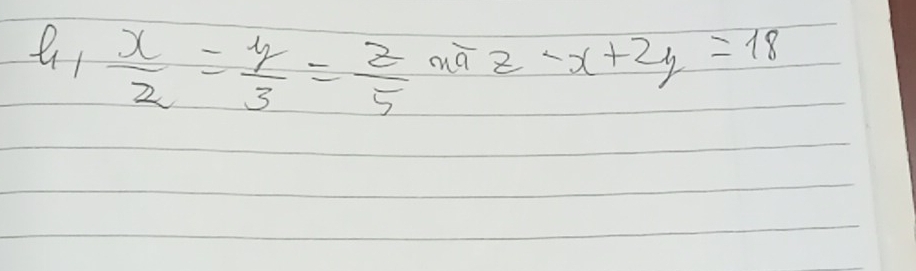 h, x/2 = y/3 = z/5 và z - x + 2y = 18